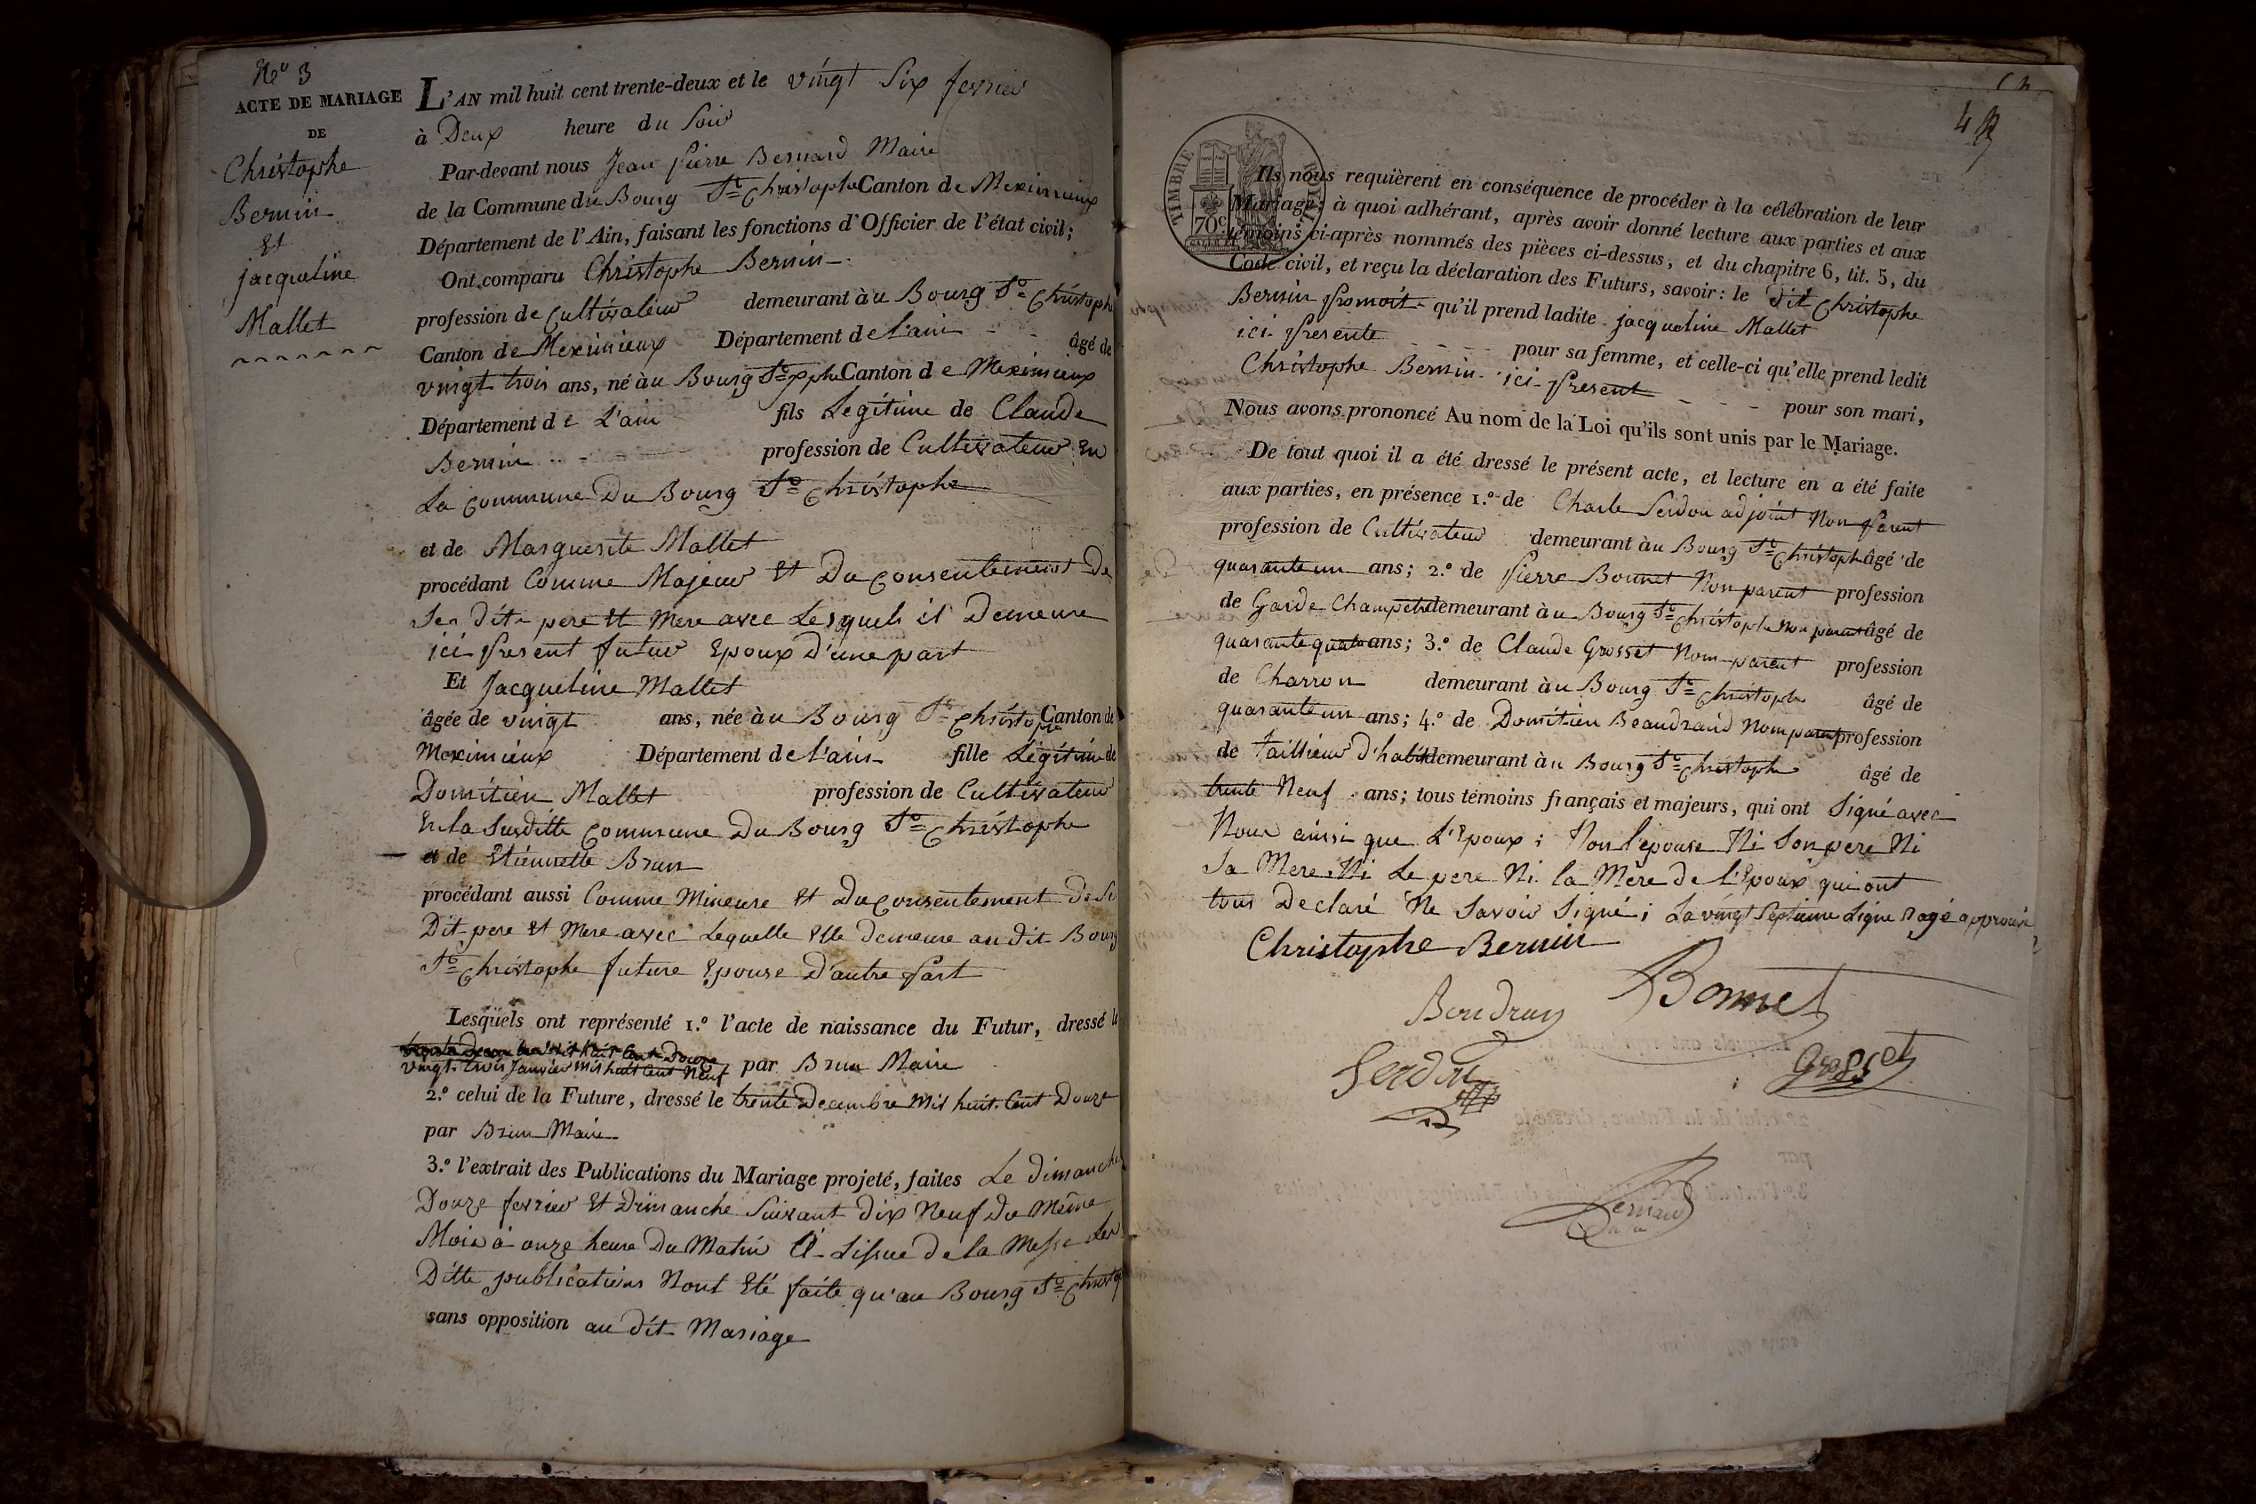 Nº 3
ACTE DE MARIAGE
DE
Christophe
Bernin
Et
jacqueline
Mallet
L'AN mil huit cent trente-deux et le vingt Six fevrier
à Deux heure du Soir
Par-devant nous Jean pierre Bernard Maire
de la Commune du Bourg St Christophe Canton de Meximieux
Département de l'Ain, faisant les fonctions d'Officier de l'état civil;
Ont comparu Christophe Bernin
profession de Cultivateur demeurant à u Bourg St Christophe
Canton de Meximieux Département de l'ain âgé de
vingt trois ans, né à u Bourg St xphe Canton d e Meximieux
Département d e L'ain fils Legitime de Claude
Bernin profession de Cultivateur En
La Commune Du Bourg St Christophe
et de Marguerite Mallet
procédant Comme Majeur Et Du Consentement De
Ses Dit pere Et Mere avec Lesquels il Demeure
ici Present futur Epoux D'une part
Et Jacqueline Mallet
âgée de vingt ans, née à u Bourg St Christophe Canton de
Meximieux Département de l'ain fille Légitime de
Domitien Mallet profession de Cultivateur
En la Susditte Commune Du Bourg St Christophe
et de Etiennette Brun
procédant aussi Comme Mineure Et Du Consentement De Se
Dit pere Et Mere avec Lequelle Elle Demeure au dit Bourg
St Christophe future Epouse D'autre Part
Lesquels ont représenté 1.º l'acte de naissance du Futur, dressé le
vingt-trois Janvier Mil huit Cent Neuf par Brun Maire
2.º celui de la Future, dressé le trente Decembre Mil huit Cent Douze
par Brun Maire
3.º l'extrait des Publications du Mariage projeté, faites Le Dimanche
Douze fevrier Et Dimanche Suivant Dix Neuf Du Même
Mois à onze heure Du Matin A Lissue De la Messe Les
Ditte publications Nont Eté faite qu'au Bourg St Christophe
sans opposition au dit Mariage
4
TIMBRE ROYAL
70c
Ils nous requièrent en conséquence de procéder à la célébration de leur
Mariage; à quoi adhérant, après avoir donné lecture aux parties et aux
témoins ci-après nommés des pièces ci-dessus, et du chapitre 6, tit. 5, du
Code civil, et reçu la déclaration des Futurs, savoir: le Dit Christophe
Bernin Promoit qu'il prend ladite jacqueline Mallet
ici Presente pour sa femme, et celle-ci qu'elle prend ledit
Christophe Bernin ici Present pour son mari,
Nous avons prononcé Au nom de la Loi qu'ils sont unis par le Mariage.
De tout quoi il a été dressé le présent acte, et lecture en a été faite
aux parties, en présence 1.º de Charle Serdon adjoint Non Parent
profession de Cultivateur demeurant à u Bourg St Christophe âgé de
quarante un ans; 2.º de Pierre Bonnet Non parent profession
de Garde Champetre demeurant à u Bourg St Christophe Non parent âgé de
quarante quatre ans; 3.º de Claude Grosset Nom parent profession
de Charron demeurant à u Bourg St Christophe âgé de
quarante un ans; 4.º de Domitien Beaudrand Nom parent profession
de tailleur D'habit demeurant à u Bourg St Christophe âgé de
trente Neuf ans; tous témoins français et majeurs, qui ont Signé avec
Nous ainsi que L'Epoux; Non l'epouse Ni Son pere Ni
Sa Mere Ni Le pere Ni la Mere De l'Epoux qui ont
tous Declaré Ne Savoir Signé; La vingt Septieme Ligne Ragé approuvé
Christophe Bernin
Bonnet
Serdon
Grosset
Bernard